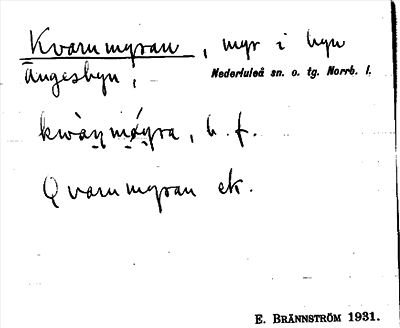 Kvarnmyran, myr i byn
Ängesbyn,
Nederluleå sn. o. tg. Norrb. l.
b. f.
Qvarnmyran ek.
E. BRÄNNSTRÖM 1931.